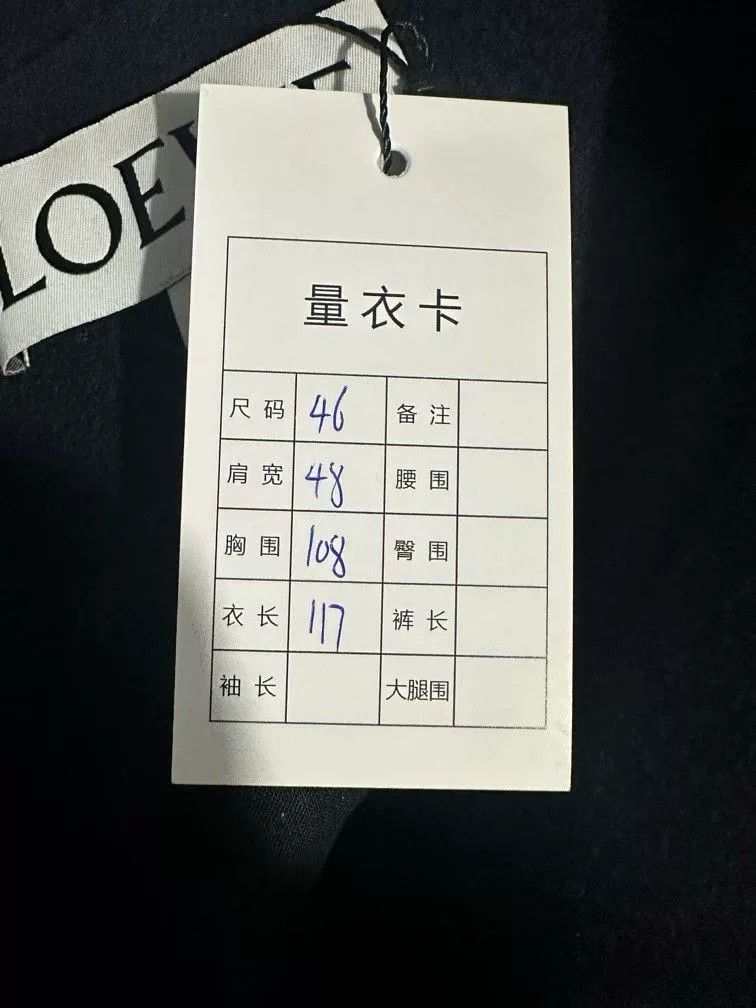 LOEWE
量衣卡
尺码 46 备注
肩宽 48 腰围
胸围 108 臀围
衣长 117 裤长
袖长 大腿围